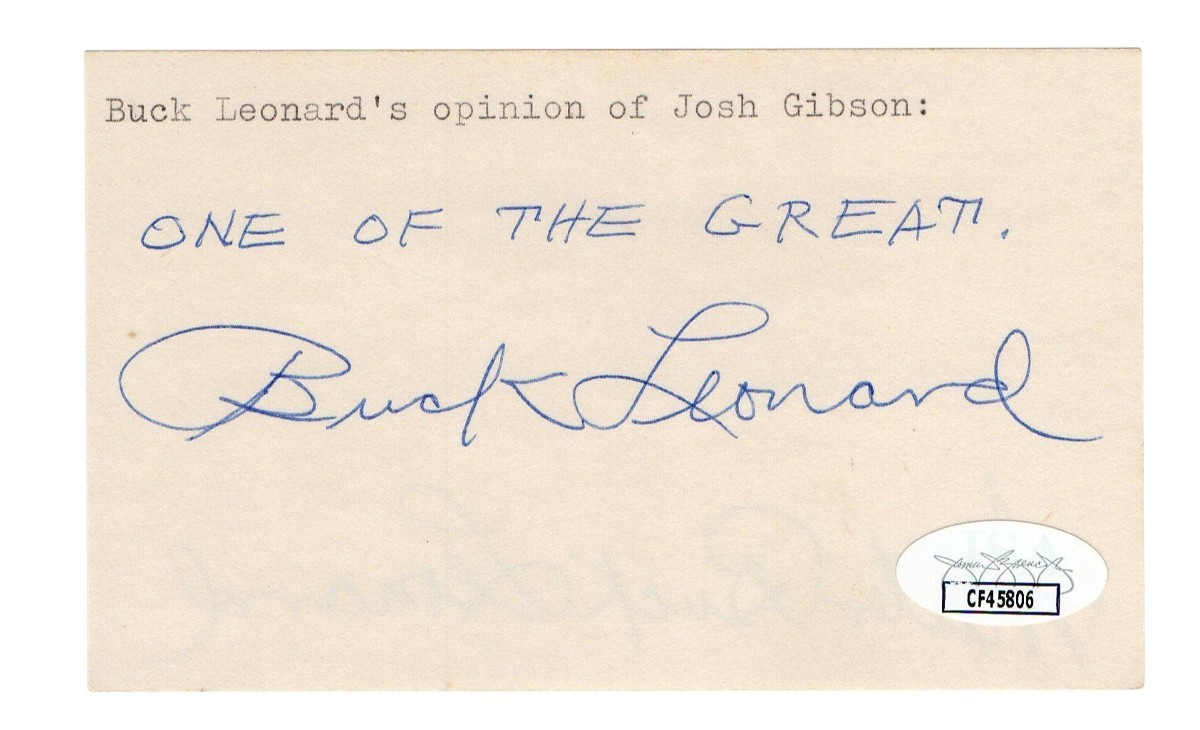 Buck Leonard's opinion of Josh Gibson:
ONE OF THE GREAT.
Buck Leonard
CF45806